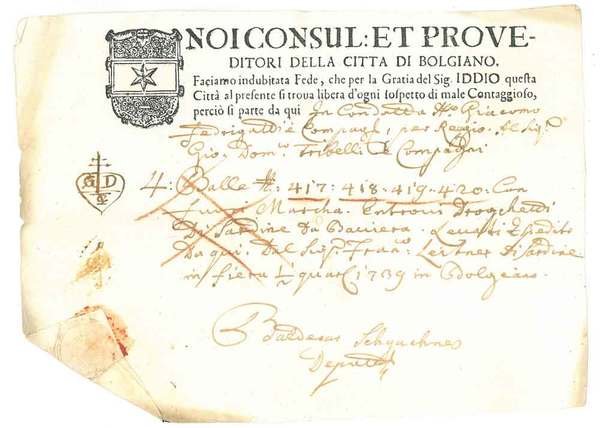 NOI CONSUL: ET PROVE-
DITORI DELLA CITTA DI BOLGIANO.
Faciamo indubitata Fede, che per la Gratia del Sig. IDDIO questa
Città al presente si troua libera d'ogni sospetto di male Contaggioso,
perciò si parte da qui In Condotta Giacomo
è Compagi, per Reggio. Al Sigr
Gio. Domco Tribelli & Compagni
G D
&
4: Balle #: 417: 418: 419: 420: Con
Marcha. Droghetti
Di Sardine Da Baviera. Levati è Spediti
Da qui Dal Sigr Franco Leitner Di Sardine
in fiera 1/2 quari 1739 in Bolgiano.
Baldesar
Deputt